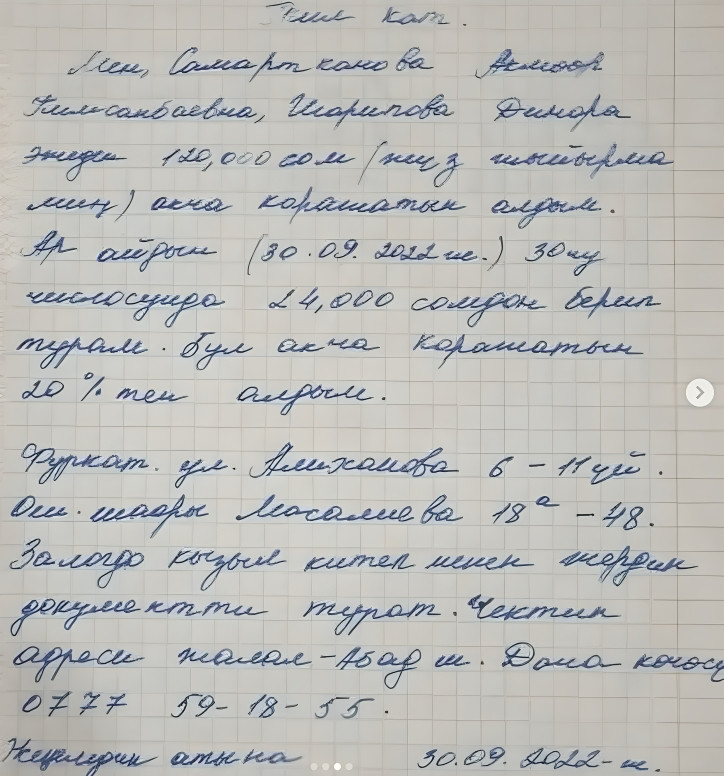 Тил кат.
Мен, Самарткановa Акмоор
Тилисанбаевна, Шарипова Динора
эжеден 120,000 сом (жүз жыйырма
миң) акча каражатын алдым.
Ар айдын (30.09.2022 ж.) 30 чу
числосунда 24,000 сомдон берип
турам. Бул акча каражатын
20 % тен алдым.
Фуркат. ул. Алиханова 6 - 11 үй.
Ош. шаары Масалиева 18 а - 48.
Залогдо кызыл китеп менен жердин
документти турат. Үчөктүн
адреси Жалал-Абад ш. Дома көчөсү
0777 59-18-55.
атына 30.09.2022-ж.